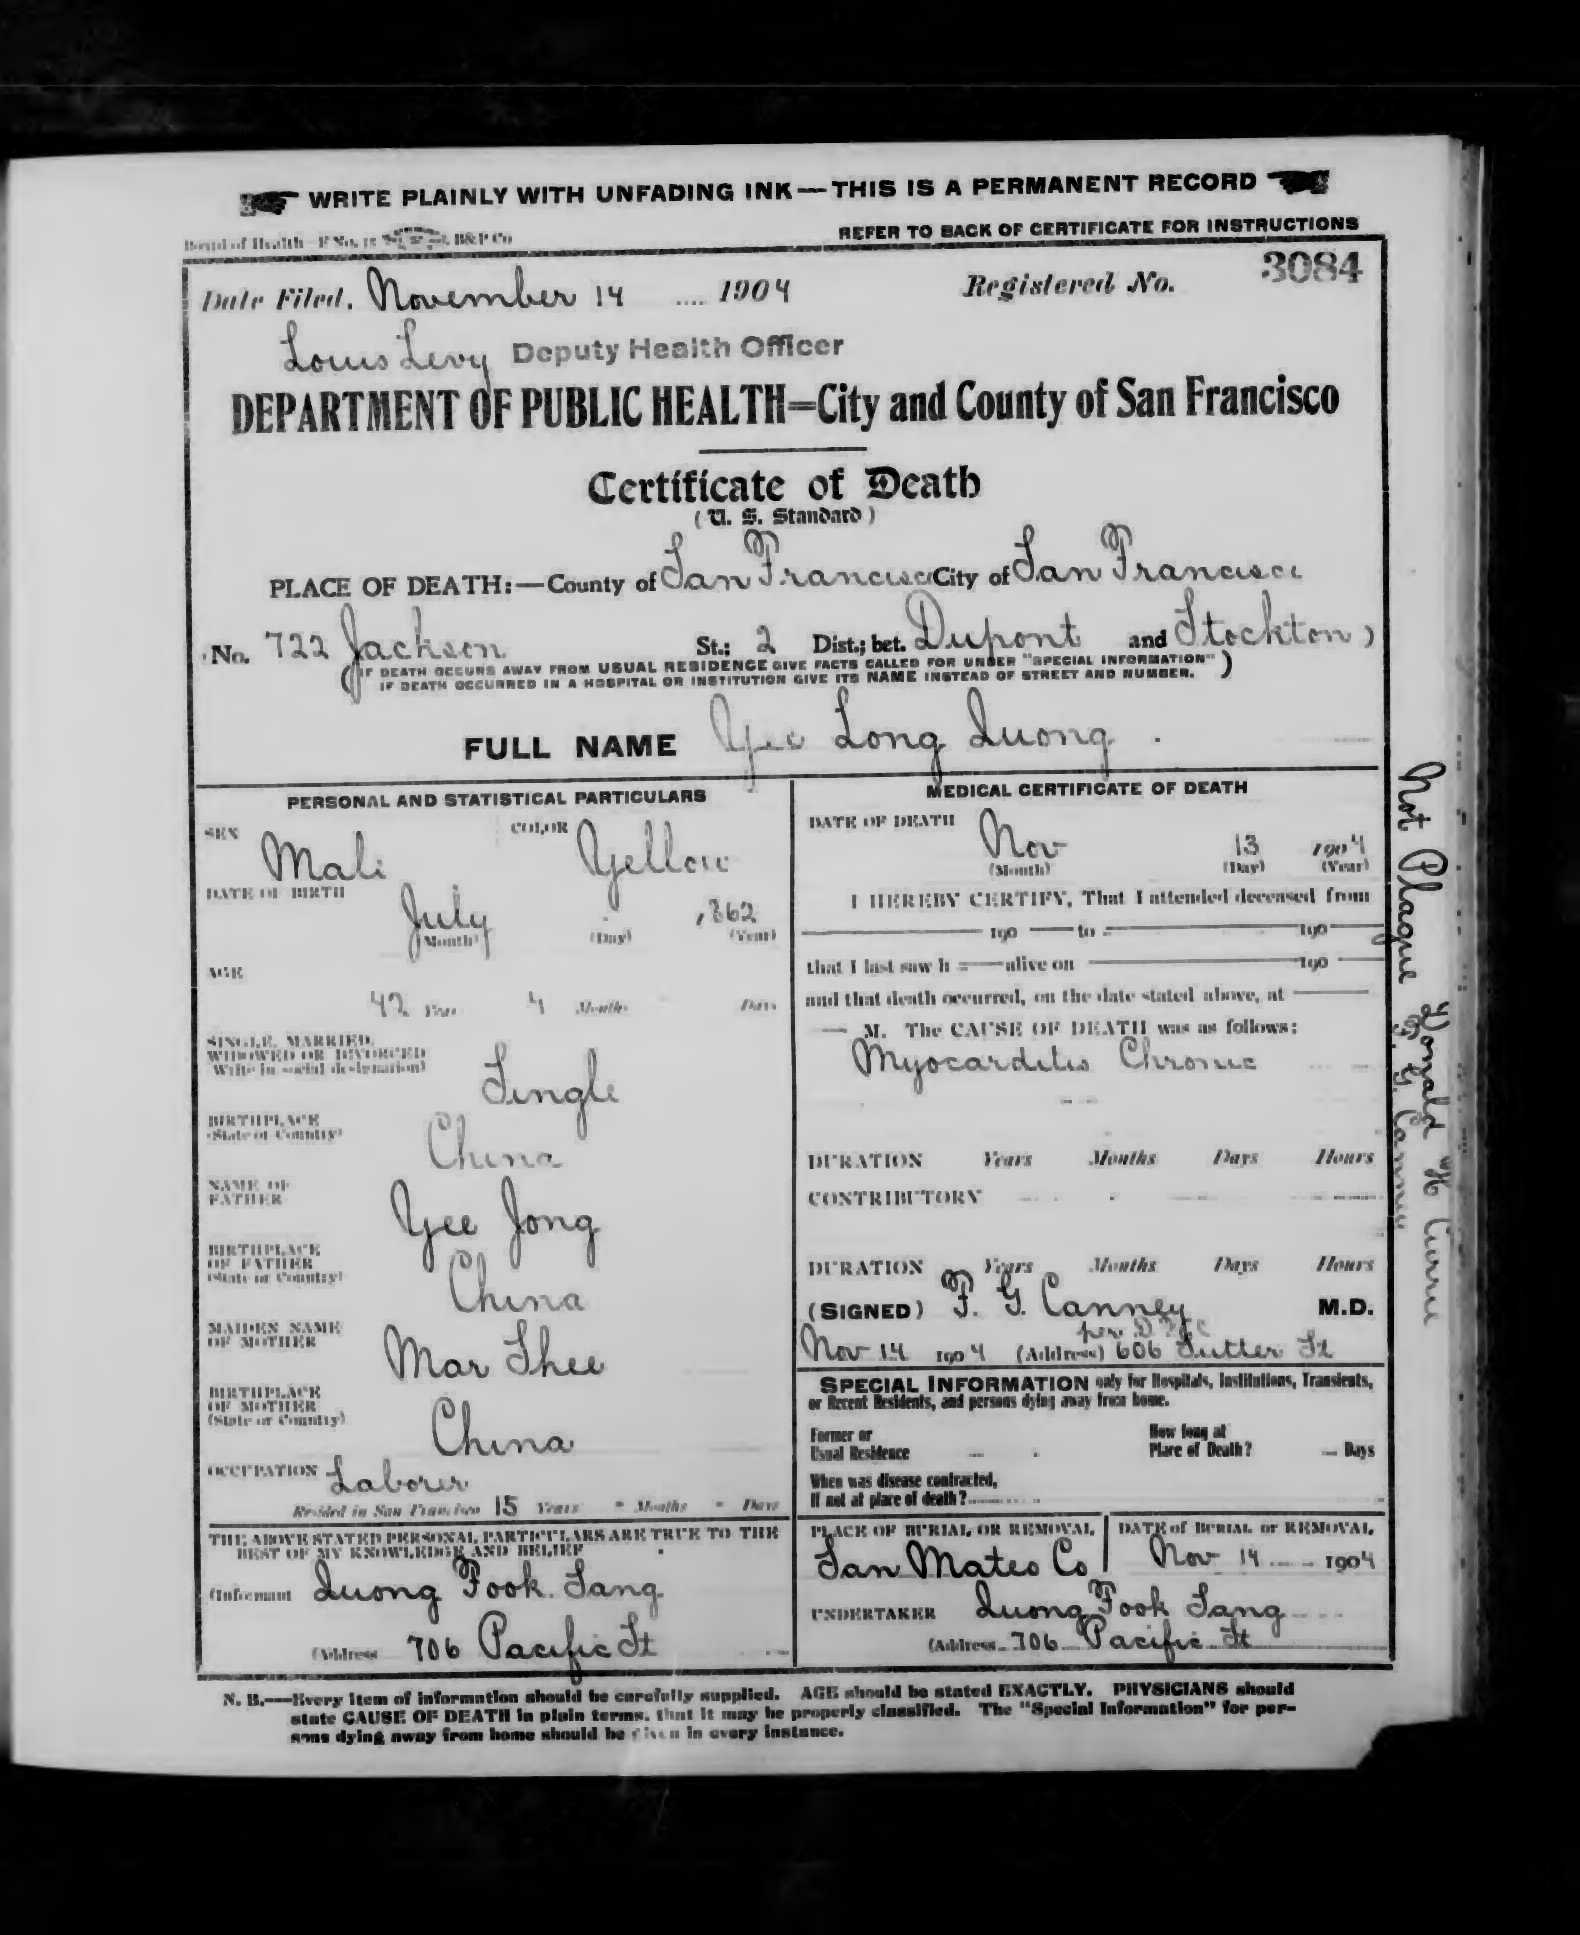 WRITE PLAINLY WITH UNFADING INK—THIS IS A PERMANENT RECORD
Board of Health—F No. 15 B&P Co
REFER TO BACK OF CERTIFICATE FOR INSTRUCTIONS
Date Filed. November 14 1904 Registered No. 3084
Louis Levy Deputy Health Officer
DEPARTMENT OF PUBLIC HEALTH=City and County of San Francisco
Certificate of Death
(U. S. Standard)
PLACE OF DEATH:—County of San Francisco City of San Francisco
No. 722 Jackson St.; 2 Dist.; bet. Dupont and Stockton)
(IF DEATH OCCURS AWAY FROM USUAL RESIDENCE GIVE FACTS CALLED FOR UNDER "SPECIAL INFORMATION"
IF DEATH OCCURRED IN A HOSPITAL OR INSTITUTION GIVE ITS NAME INSTEAD OF STREET AND NUMBER.)
FULL NAME Yee Long Quong
PERSONAL AND STATISTICAL PARTICULARS
SEX Male COLOR Yellow
DATE OF BIRTH
July 1862
(Month) (Day) (Year)
AGE
42 Years 4 Months Days
SINGLE, MARRIED,
WIDOWED OR DIVORCED
(Write in social designation)
Single
BIRTHPLACE
(State or Country)
China
NAME OF
FATHER
Yee Jong
BIRTHPLACE
OF FATHER
(State or Country)
China
MAIDEN NAME
OF MOTHER
Mar Shee
BIRTHPLACE
OF MOTHER
(State or Country)
China
OCCUPATION Laborer
Resided in San Francisco 15 Years - Months - Days
THE ABOVE STATED PERSONAL PARTICULARS ARE TRUE TO THE
BEST OF MY KNOWLEDGE AND BELIEF
(Informant Quong Fook Sang
(Address 706 Pacific St
MEDICAL CERTIFICATE OF DEATH
DATE OF DEATH
Nov 13 1904
(Month) (Day) (Year)
I HEREBY CERTIFY, That I attended deceased from
190 to 190
that I last saw h alive on 190
and that death occurred, on the date stated above, at
— M. The CAUSE OF DEATH was as follows:
Myocarditis Chronic
DURATION Years Months Days Hours
CONTRIBUTORY
DURATION Years Months Days Hours
(SIGNED) F. G. Canney M.D.
per
Nov 14 1904 (Address) 606 Sutter St
SPECIAL INFORMATION only for Hospitals, Institutions, Transients,
or Recent Residents, and persons dying away from home.
Former or
Usual Residence
How long at
Place of Death? — Days
When was disease contracted,
If not at place of death?
PLACE OF BURIAL OR REMOVAL
San Mateo Co
DATE of BURIAL or REMOVAL
Nov 14 1904
UNDERTAKER Quong Fook Sang
(Address 706 Pacific St
N. B.—Every item of information should be carefully supplied. AGE should be stated EXACTLY. PHYSICIANS should
state CAUSE OF DEATH in plain terms, that it may be properly classified. The "Special Information" for per-
sons dying away from home should be given in every instance.
Not Plague Donald H Currie
F. G. Canney